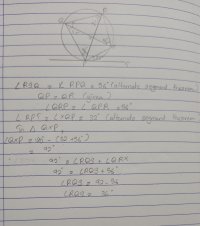 ∠RSQ = ∠RPQ = 56° (alternate segment theorem
QP = QR (given)
∠QRP = ∠QPR = 56°
∠RPT = ∠XQP = 32° (alternate segment theorem
In △ QXP,
∠QXP = 180 - (32+56°)
= 92°
92° = ∠RQS + ∠QRX
92° = ∠RQS + 56°
∠RQS = 92 - 56
∠RQS = 36°